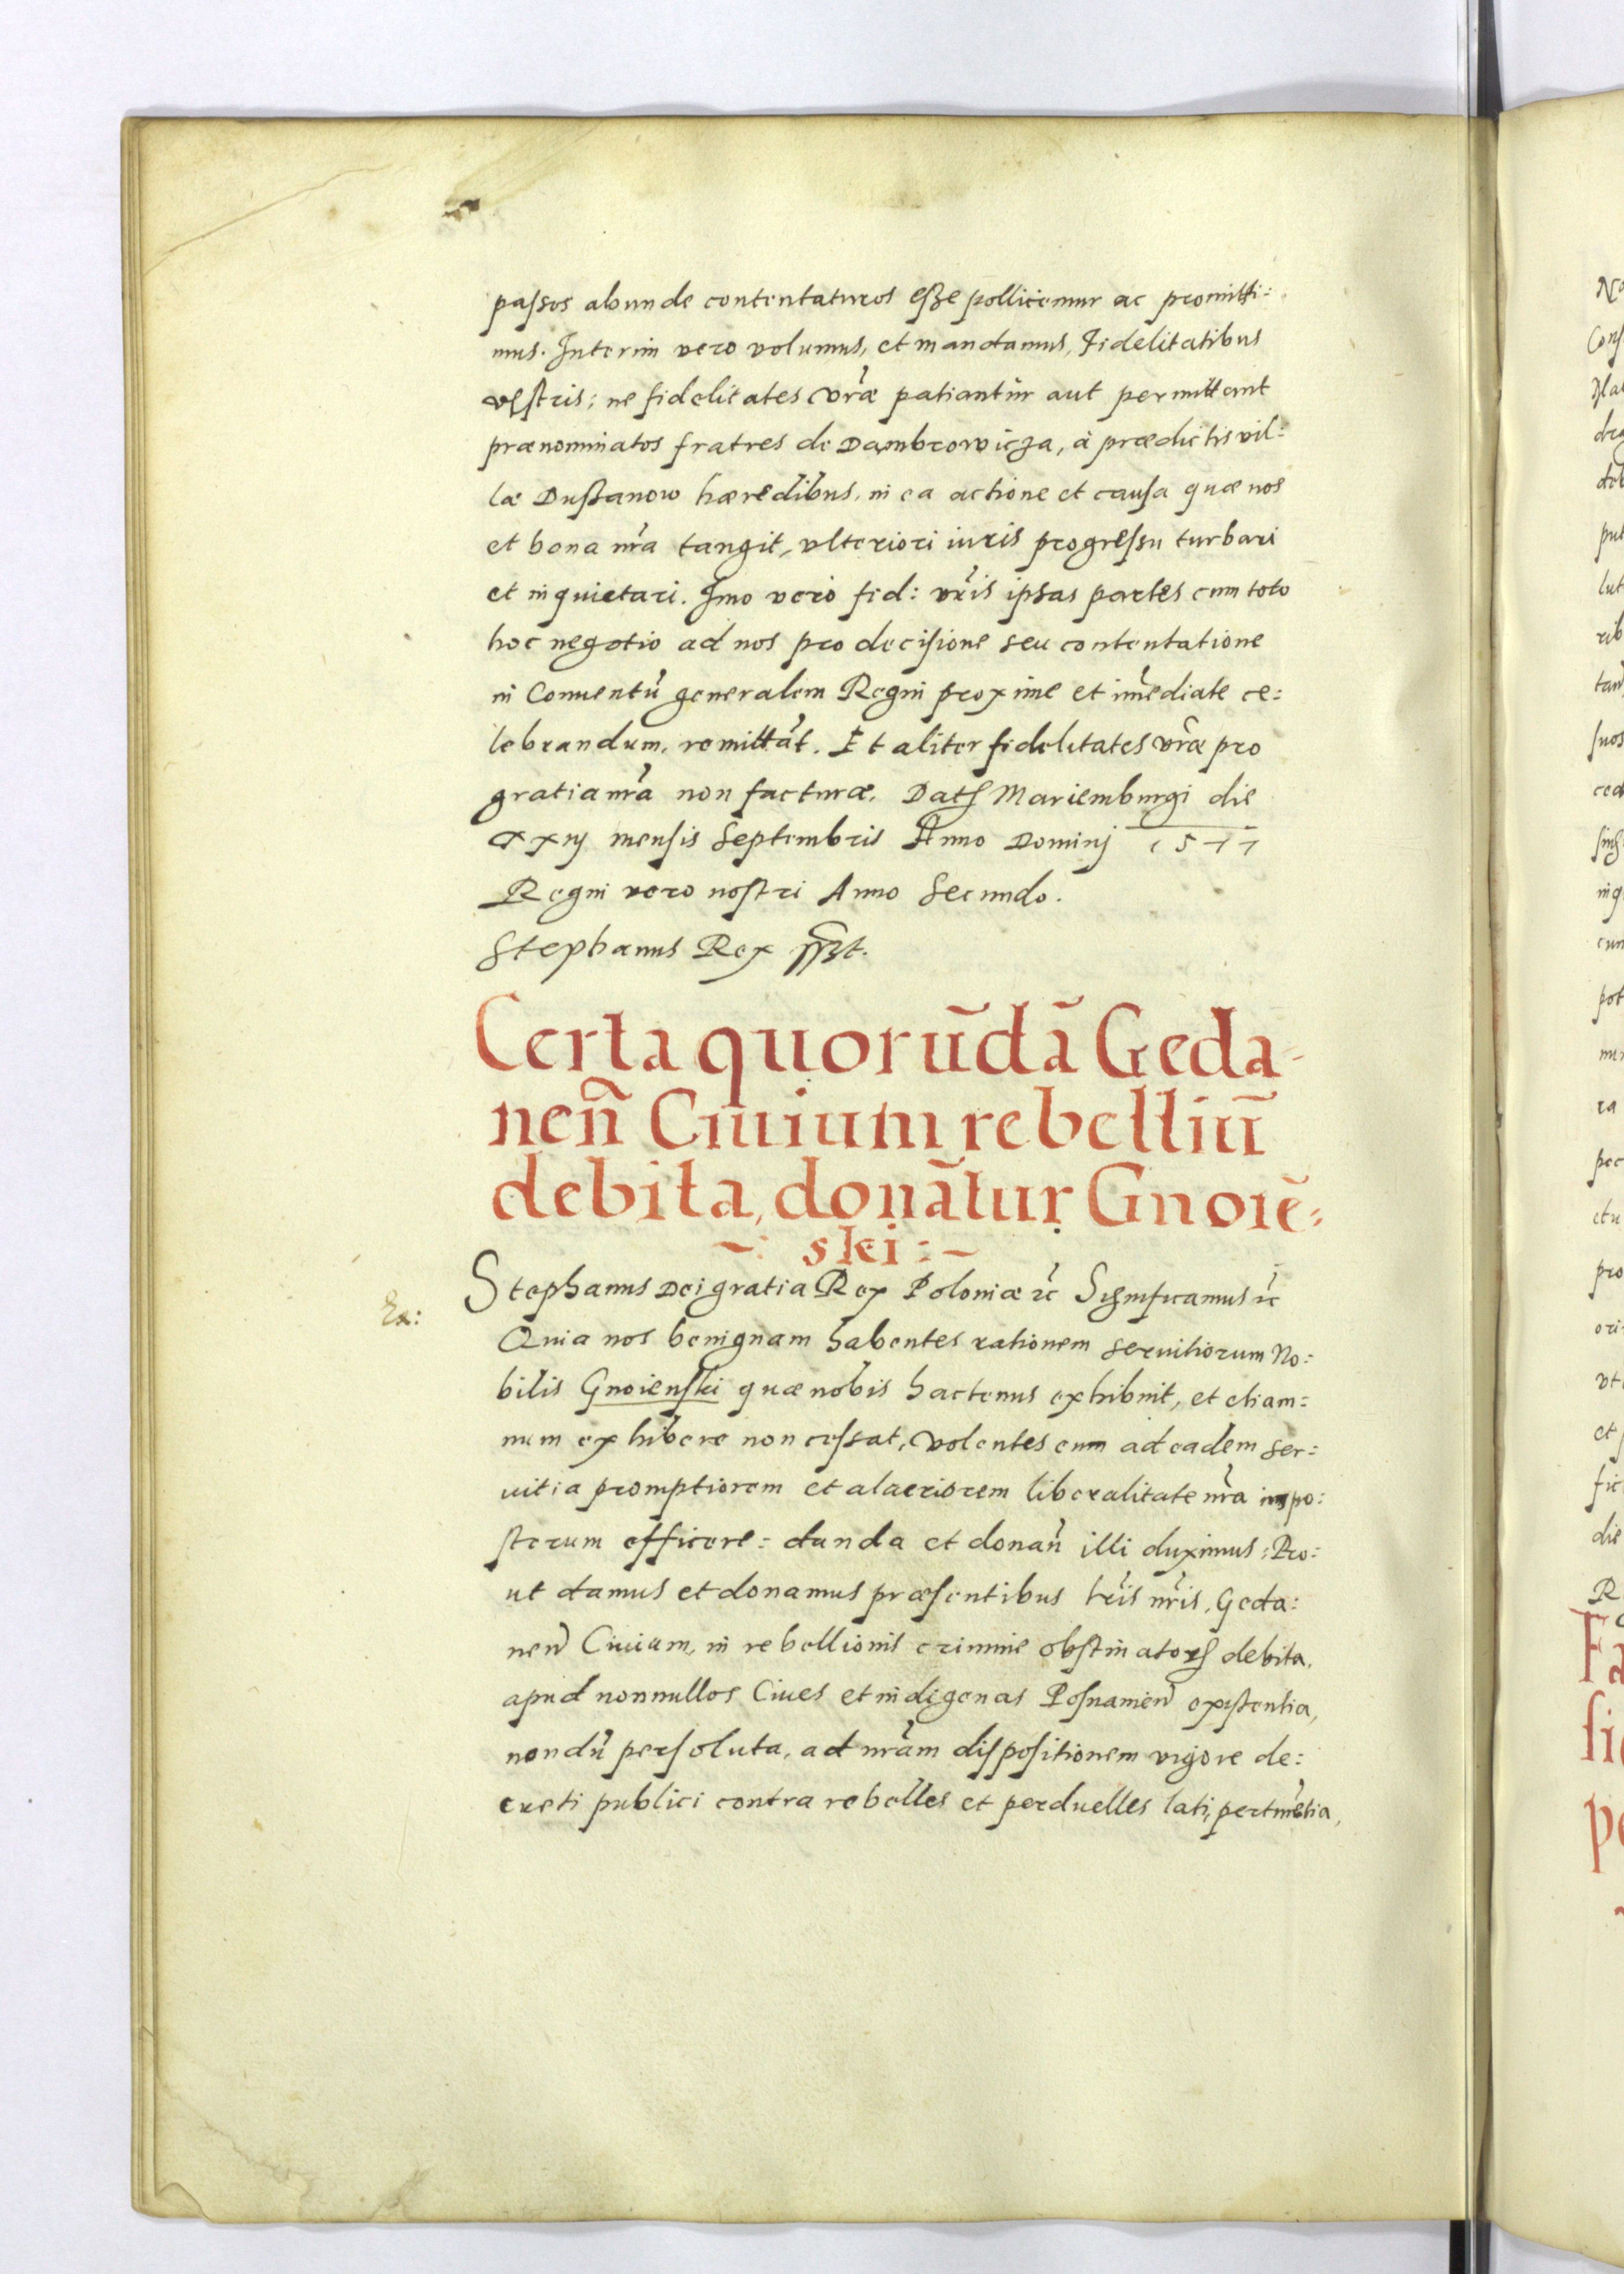 passos abunde contentaturos esse pollicemur ac promitti:
mus. Interim vero volumus, et mandamus, Fidelitatibus
vestris; ne fidelitates vr̃ae patiantur aut permittant
praenominatos fratres de Dąmbrowicza, à praedictis vil:
lae Dustanow haeredibus, in ea actione et causa quae nos
et bona nr̃a tangit, ulteriori iuris progressu turbari
et inquietari. Imo vero fid: vr̃is ipsas partes cum toto
hoc negotio ad nos pro decisione seu contentatione
in Conuentũ generalem Regni proxime et im̃ediate ce:
lebrandum, remittãt. Et aliter fidelitates vr̃ae pro
gratia nr̃a non facturae. Datʒ Mariemburgi die
xxij mensis Septembris Anno Dominj 1577
Regni vero nostri Anno Secundo.
Stephanus Rex sszt.
Certa quorũdã Geda-
nen̄ Ciuium rebelliũ
debita, donãtur Gnoiẽ:
~: ski :~
Ex:
Stephanus Dei gratia Rex Poloniae ec̃ Significamus ec̃
Quia nos benignam habentes rationem seruitiorum No:
bilis Gnoienski quae nobis hactenus exhibuit, et etiam:
num exhibere non cessat, volentes eum ad eadem ser:
uitia promptiorem et alacriorem liberalitate nr̃a impo:
sterum efficere: danda et donan̄ illi duximus: Pro:
ut damus et donamus praesentibus lr̃is nr̃is, Geda:
nen̄ Ciuium, in rebellionis crimine obstinatorʒ debita,
apud nonnullos Ciues et indigenas Posnamien̄ existentia,
nondũ persoluta, ad nr̃am dispositionem vigore de:
creti publici contra rebelles et perduelles lati, pertinẽtia,